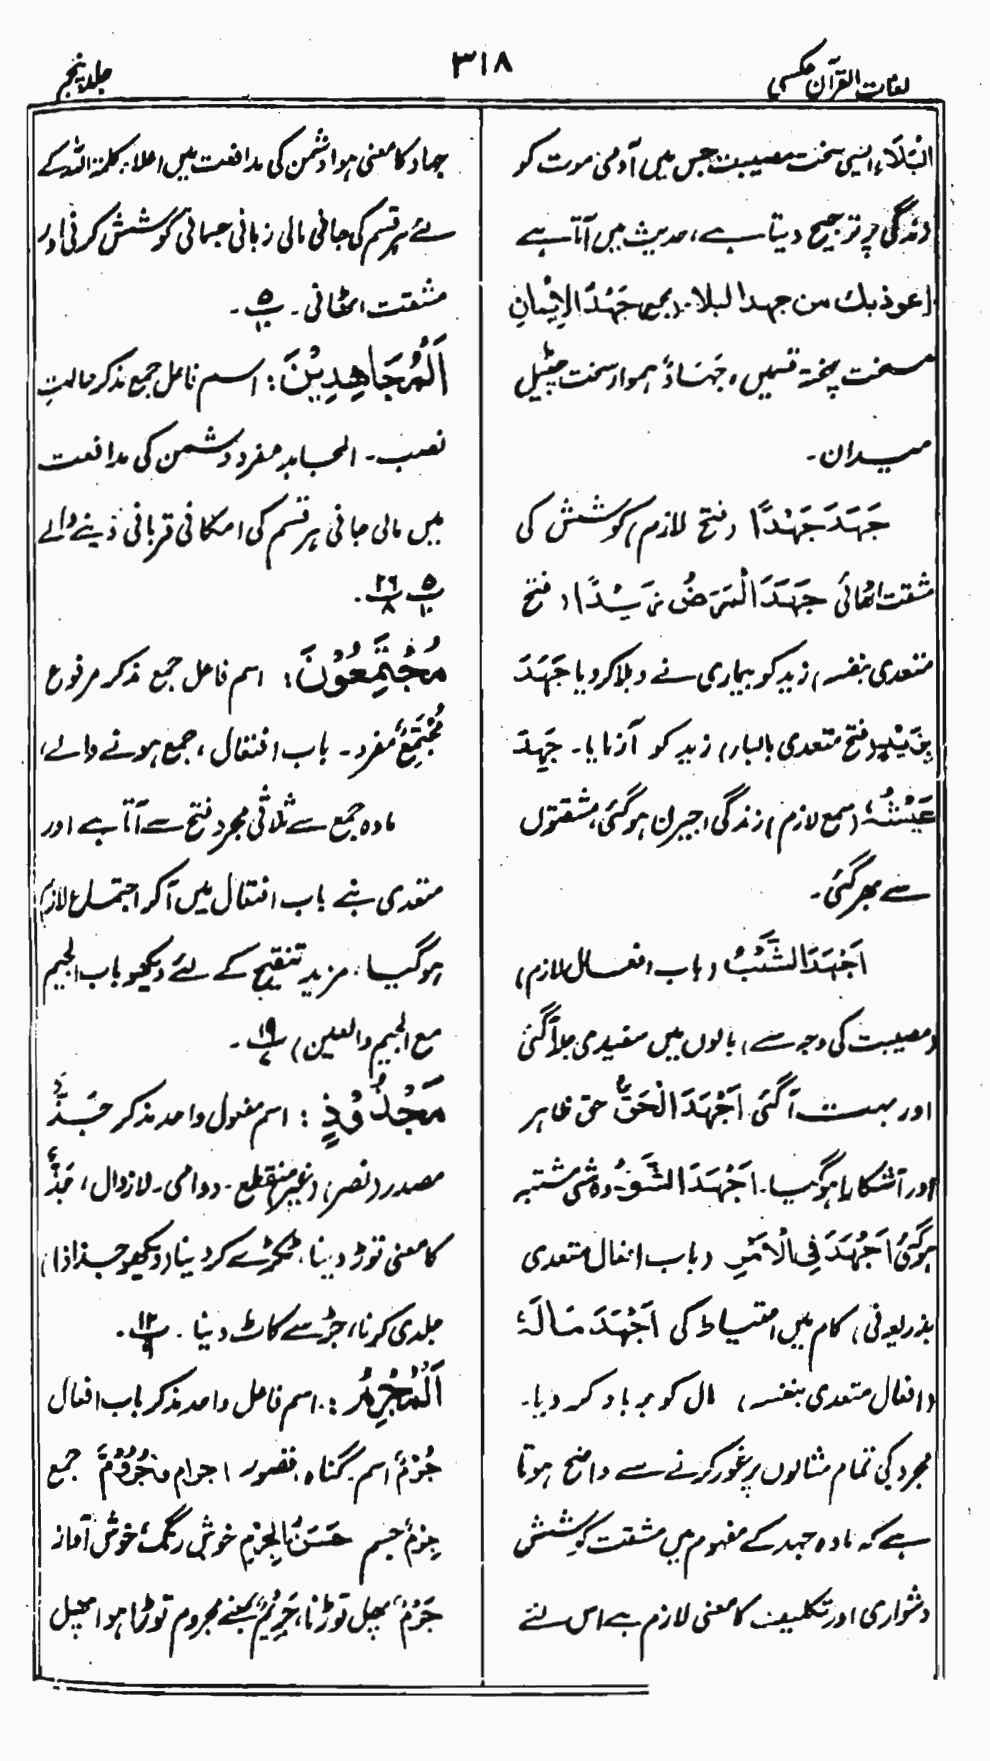 لغات القرآن عکسی
۳۱۸
جلد پنجم
البَلَاء ایسی سخت مصیبت جس میں آدمی موت کو
زندگی پر ترجیح دیتا ہے، حدیث میں آتا ہے
اعوذ بك من جهد البلاء۔ (جمع) جَهْدُ الاِيْمَانِ
سخت پختہ قسمیں، جَهَادٌ ہموار سخت چٹیل
میدان۔
جَهَدَ جَهْدًا (فتح لازم) کوشش کی
مشقت اٹھائی جَهَدَ الْمَرَضُ زَيْدًا (فتح
متعدی بنفسہ) زید کو بیماری نے دبلا کر دیا جَهَدَ
بِزَيْدٍ (فتح متعدی بالباء) زید کو آزمایا۔ جَهِدَ
عَيْشُهٗ (سمع لازم) زندگی اجیرن ہوگئی، مشقتوں
سے بھر گئی۔
اَجْهَدَ الشَّيْبُ (باب افعال لازم)
(مصیبت کی وجہ سے) بالوں میں سفیدی جلد آگئی
اور بہت آگئی اَجْهَدَ الْحَقُّ حق ظاہر
اور آشکارا ہوگیا۔ اَجْهَدَ الشَّیْءُ وہ شی مشتبہ
ہوگئی اَجْهَدَ فِی الْاَمْرِ (باب افعال متعدی
بذریعہ فی) کام میں احتیاط کی اَجْهَدَ مَالَهٗ
(افعال متعدی بنفسہ) مال کو برباد کر دیا۔
مجرد کی تمام مثالوں پر غور کرنے سے واضح ہوتا
ہے کہ مادہ جہد کے مفہوم میں مشقت کوشش
دشواری اور تکلیف کا معنی لازم ہے اس لئے
جہاد کا معنی ہوا دشمن کی مدافعت میں اعلاء کلمۃ اللہ کے
لئے ہر قسم کی جانی مالی زبانی جسمانی کوشش کرنی اور
مشقت اٹھانی۔ ۵/۱۰۔
اَلْمُجَاهِدِيْنَ: اسم فاعل جمع مذکر حالت
نصب۔ المجاہد مفرد دشمن کی مدافعت
میں مالی جانی ہر قسم کی امکانی قربانی دینے والے
۵/۱۰ ۲۶/۸۔
مُجْتَمِعُوْنَ: اسم فاعل جمع مذکر مرفوع
مُجْتَمِعٌ مفرد۔ باب افتعال، جمع ہونے والے،
مادہ جمع سے ثلاثی مجرد فتح سے آتا ہے اور
متعدی بنے باب افتعال میں آکر اجتماع لازم
ہوگیا، مزید تنقیح کے لئے دیکھو باب الجیم
مع الجیم والعین) ۱۹/۷۔
مَجْذُوْذٍ: اسم مفعول واحد مذکر جَذٌّ
مصدر (نصر) (غیر) منقطع۔ دوامی۔ لازوال، جَذٌّ
کا معنی توڑ دینا، ٹکڑے کر دینا (دیکھو جذاذا)
جلدی کرنا، جڑ سے کاٹ دینا۔ ۱۲/۹۔
اَلْمُجْرِمُ: اسم فاعل واحد مذکر باب افعال
جُرْمٌ اسم گناہ، قصور اجرام جُرُوْمٌ جمع
جِرْمٌ جسم حَسَنُ الْجِرْمِ خوش رنگ، خوش آواز
جَرْمٌ پھل توڑنا، جَرِيْمٌ بمعنے مجروم توڑا ہوا پھل